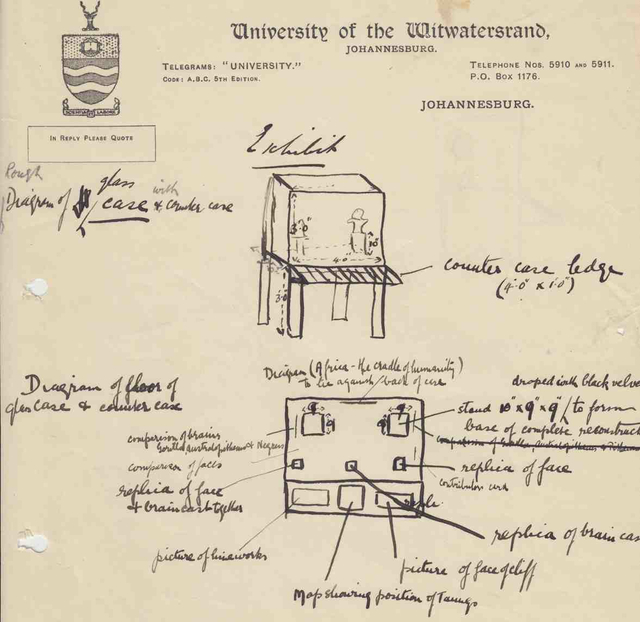 University of the Witwatersrand,
JOHANNESBURG.
TELEGRAMS: "UNIVERSITY."
CODE: A.B.C. 5TH EDITION.
TELEPHONE NOS. 5910 AND 5911.
P.O. BOX 1176.
JOHANNESBURG.
SCIENTIA ET LABORE
IN REPLY PLEASE QUOTE
Exhibit
Rough
glass
with
Diagram of case & counter case
3'.0"
4'.0"
3'.0"
counter case ledge
(4'.0" x 1'.0")
Diagram of floor of
glass case & counter case
Diagram (Africa - the cradle of humanity)
to lie against back of case
draped with black velve
stand 10" x 9" x 9" / to form
base of complete reconstruct
comparison of brains
Gorilla australopithecus & Negroes
comparison of faces
replica of face
& braincast together
replica of face
contributors card
replica of brain cas
picture of limeworks
picture of face of cliff
Map showing position of Taungs